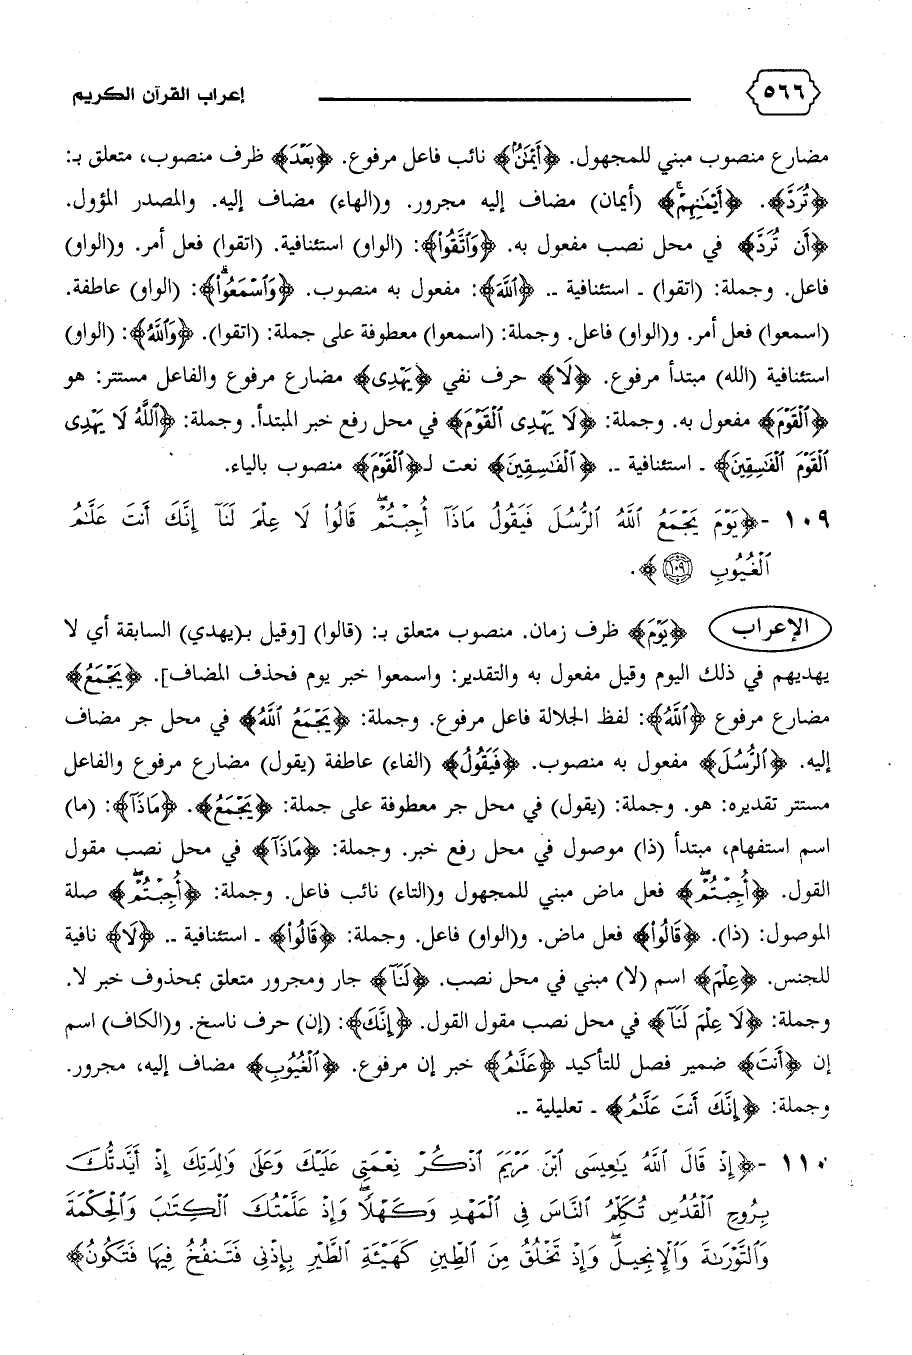 ٥٦٦ إعراب القرآن الكريم
مضارع منصوب مبني للمجهول. ﴿أَيْمَٰنٌۢ﴾ نائب فاعل مرفوع. ﴿بَعْدَ﴾ ظرف منصوب، متعلق بـ:
﴿تُرَدَّ﴾. ﴿أَيْمَٰنِهِمْۗ﴾ (أيمان) مضاف إليه مجرور. و(الهاء) مضاف إليه. والمصدر المؤول.
﴿أَن تُرَدَّ﴾ في محل نصب مفعول به. ﴿وَٱتَّقُوا۟﴾: (الواو) استئنافية. (اتقوا) فعل أمر. و(الواو)
فاعل. وجملة: (اتقوا) ـ استئنافية .. ﴿ٱللَّهَ﴾: مفعول به منصوب. ﴿وَٱسْمَعُوا۟ۗ﴾: (الواو) عاطفة.
(اسمعوا) فعل أمر. و(الواو) فاعل. وجملة: (اسمعوا) معطوفة على جملة: (اتقوا). ﴿وَٱللَّهُ﴾: (الواو)
استئنافية (الله) مبتدأ مرفوع. ﴿لَا﴾ حرف نفي ﴿يَهْدِى﴾ مضارع مرفوع والفاعل مستتر: هو
﴿ٱلْقَوْمَ﴾ مفعول به. وجملة: ﴿لَا يَهْدِى ٱلْقَوْمَ﴾ في محل رفع خبر المبتدأ. وجملة: ﴿ٱللَّهُ لَا يَهْدِى
ٱلْقَوْمَ ٱلْفَٰسِقِينَ﴾ ـ استئنافية .. ﴿ٱلْفَٰسِقِينَ﴾ نعت لـ﴿ٱلْقَوْمَ﴾ منصوب بالياء.
١٠٩ -﴿يَوْمَ يَجْمَعُ ٱللَّهُ ٱلرُّسُلَ فَيَقُولُ مَاذَآ أُجِبْتُمْۖ قَالُوا۟ لَا عِلْمَ لَنَآۖ إِنَّكَ أَنتَ عَلَّٰمُ
ٱلْغُيُوبِ ١٠٩﴾.
الإعراب ﴿يَوْمَ﴾ ظرف زمان. منصوب متعلق بـ: (قالوا) [وقيل بـ(يهدي) السابقة أي لا
يهديهم في ذلك اليوم وقيل مفعول به والتقدير: واسمعوا خبر يوم فحذف المضاف]. ﴿يَجْمَعُ﴾
مضارع مرفوع ﴿ٱللَّهُ﴾: لفظ الجلالة فاعل مرفوع. وجملة: ﴿يَجْمَعُ ٱللَّهُ﴾ في محل جر مضاف
إليه. ﴿ٱلرُّسُلَ﴾ مفعول به منصوب. ﴿فَيَقُولُ﴾ (الفاء) عاطفة (يقول) مضارع مرفوع والفاعل
مستتر تقديره: هو. وجملة: (يقول) في محل جر معطوفة على جملة: ﴿يَجْمَعُ﴾. ﴿مَاذَآ﴾: (ما)
اسم استفهام، مبتدأ (ذا) موصول في محل رفع خبر. وجملة: ﴿مَاذَآ﴾ في محل نصب مقول
القول. ﴿أُجِبْتُمْۖ﴾ فعل ماض مبني للمجهول و(التاء) نائب فاعل. وجملة: ﴿أُجِبْتُمْۖ﴾ صلة
الموصول: (ذا). ﴿قَالُوا۟﴾ فعل ماض. و(الواو) فاعل. وجملة: ﴿قَالُوا۟﴾ ـ استئنافية .. ﴿لَا﴾ نافية
للجنس. ﴿عِلْمَ﴾ اسم (لا) مبني في محل نصب. ﴿لَنَآ﴾ جار ومجرور متعلق بمحذوف خبر لا.
وجملة: ﴿لَا عِلْمَ لَنَآ﴾ في محل نصب مقول القول. ﴿إِنَّكَ﴾: (إن) حرف ناسخ. و(الكاف) اسم
إن ﴿أَنتَ﴾ ضمير فصل للتأكيد ﴿عَلَّٰمُ﴾ خبر إن مرفوع. ﴿ٱلْغُيُوبِ﴾ مضاف إليه، مجرور.
وجملة: ﴿إِنَّكَ أَنتَ عَلَّٰمُ﴾ ـ تعليلية ..
١١٠ -﴿إِذْ قَالَ ٱللَّهُ يَٰعِيسَى ٱبْنَ مَرْيَمَ ٱذْكُرْ نِعْمَتِى عَلَيْكَ وَعَلَىٰ وَٰلِدَتِكَ إِذْ أَيَّدتُّكَ
بِرُوحِ ٱلْقُدُسِ تُكَلِّمُ ٱلنَّاسَ فِى ٱلْمَهْدِ وَكَهْلًاۖ وَإِذْ عَلَّمْتُكَ ٱلْكِتَٰبَ وَٱلْحِكْمَةَ
وَٱلتَّوْرَىٰةَ وَٱلْإِنجِيلَۖ وَإِذْ تَخْلُقُ مِنَ ٱلطِّينِ كَهَيْـَٔةِ ٱلطَّيْرِ بِإِذْنِى فَتَنفُخُ فِيهَا فَتَكُونُ﴾